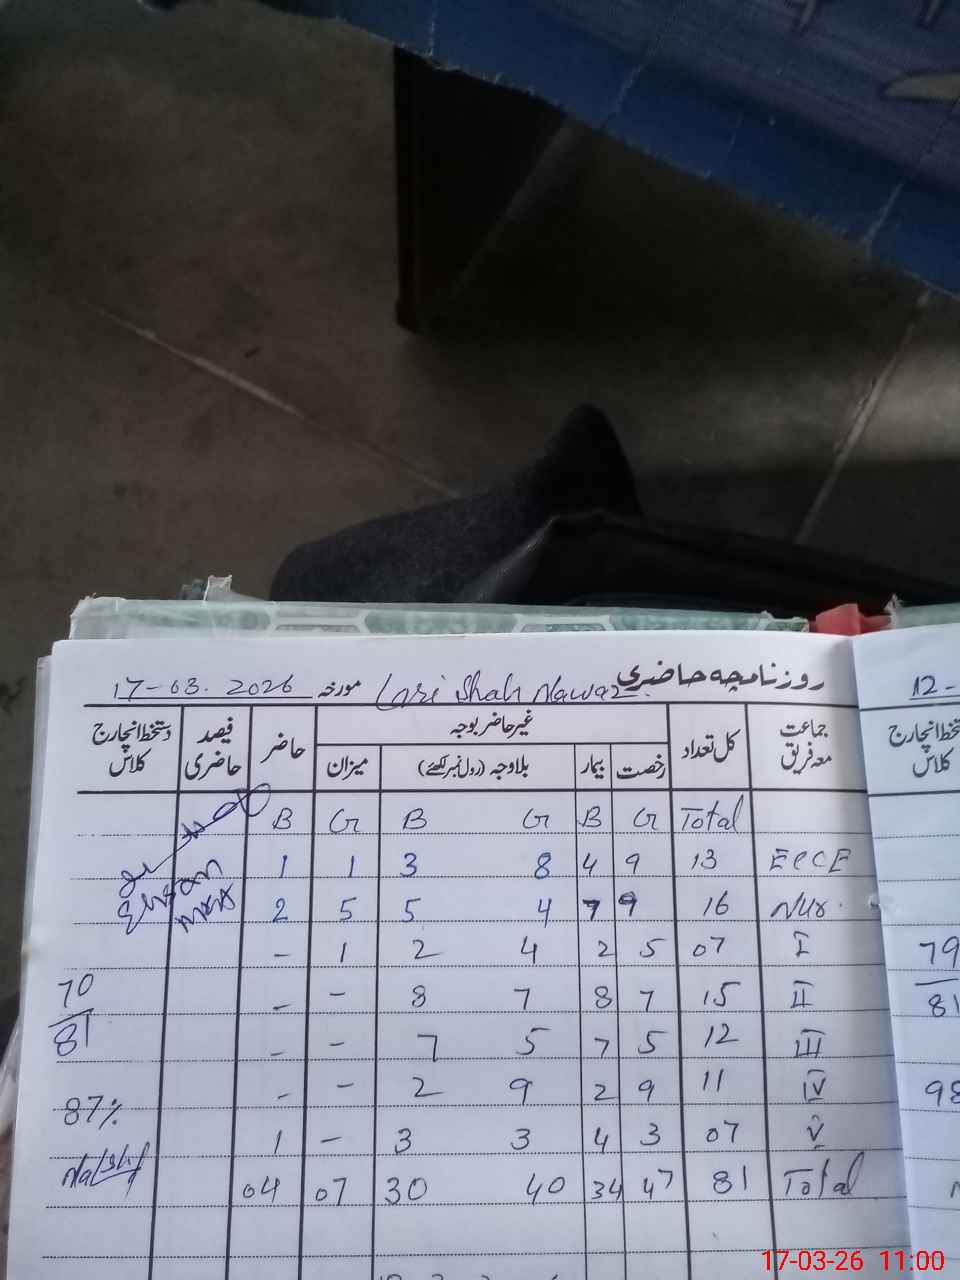 روزنامچہ حاضری Lari Shah Nawaz مورخہ 17-03.2026
جماعت معہ فریق کل تعداد غیر حاضر بوجہ حاضر فیصد حاضری دستخط انچارج کلاس
رخصت بیمار بلاوجہ (رول نمبر لکھئے) میزان
B G B G B G Total
1 1 3 8 4 9 13 ECCE
2 5 5 4 7 9 16 Nur.
- 1 2 4 2 5 07 I
- - 8 7 8 7 15 II
- - 7 5 7 5 12 III
- - 2 9 2 9 11 IV
1 - 3 3 4 3 07 V
04 07 30 40 34 47 81 Total
70
81
87%
12-
79
81
98
17-03-26 11:00